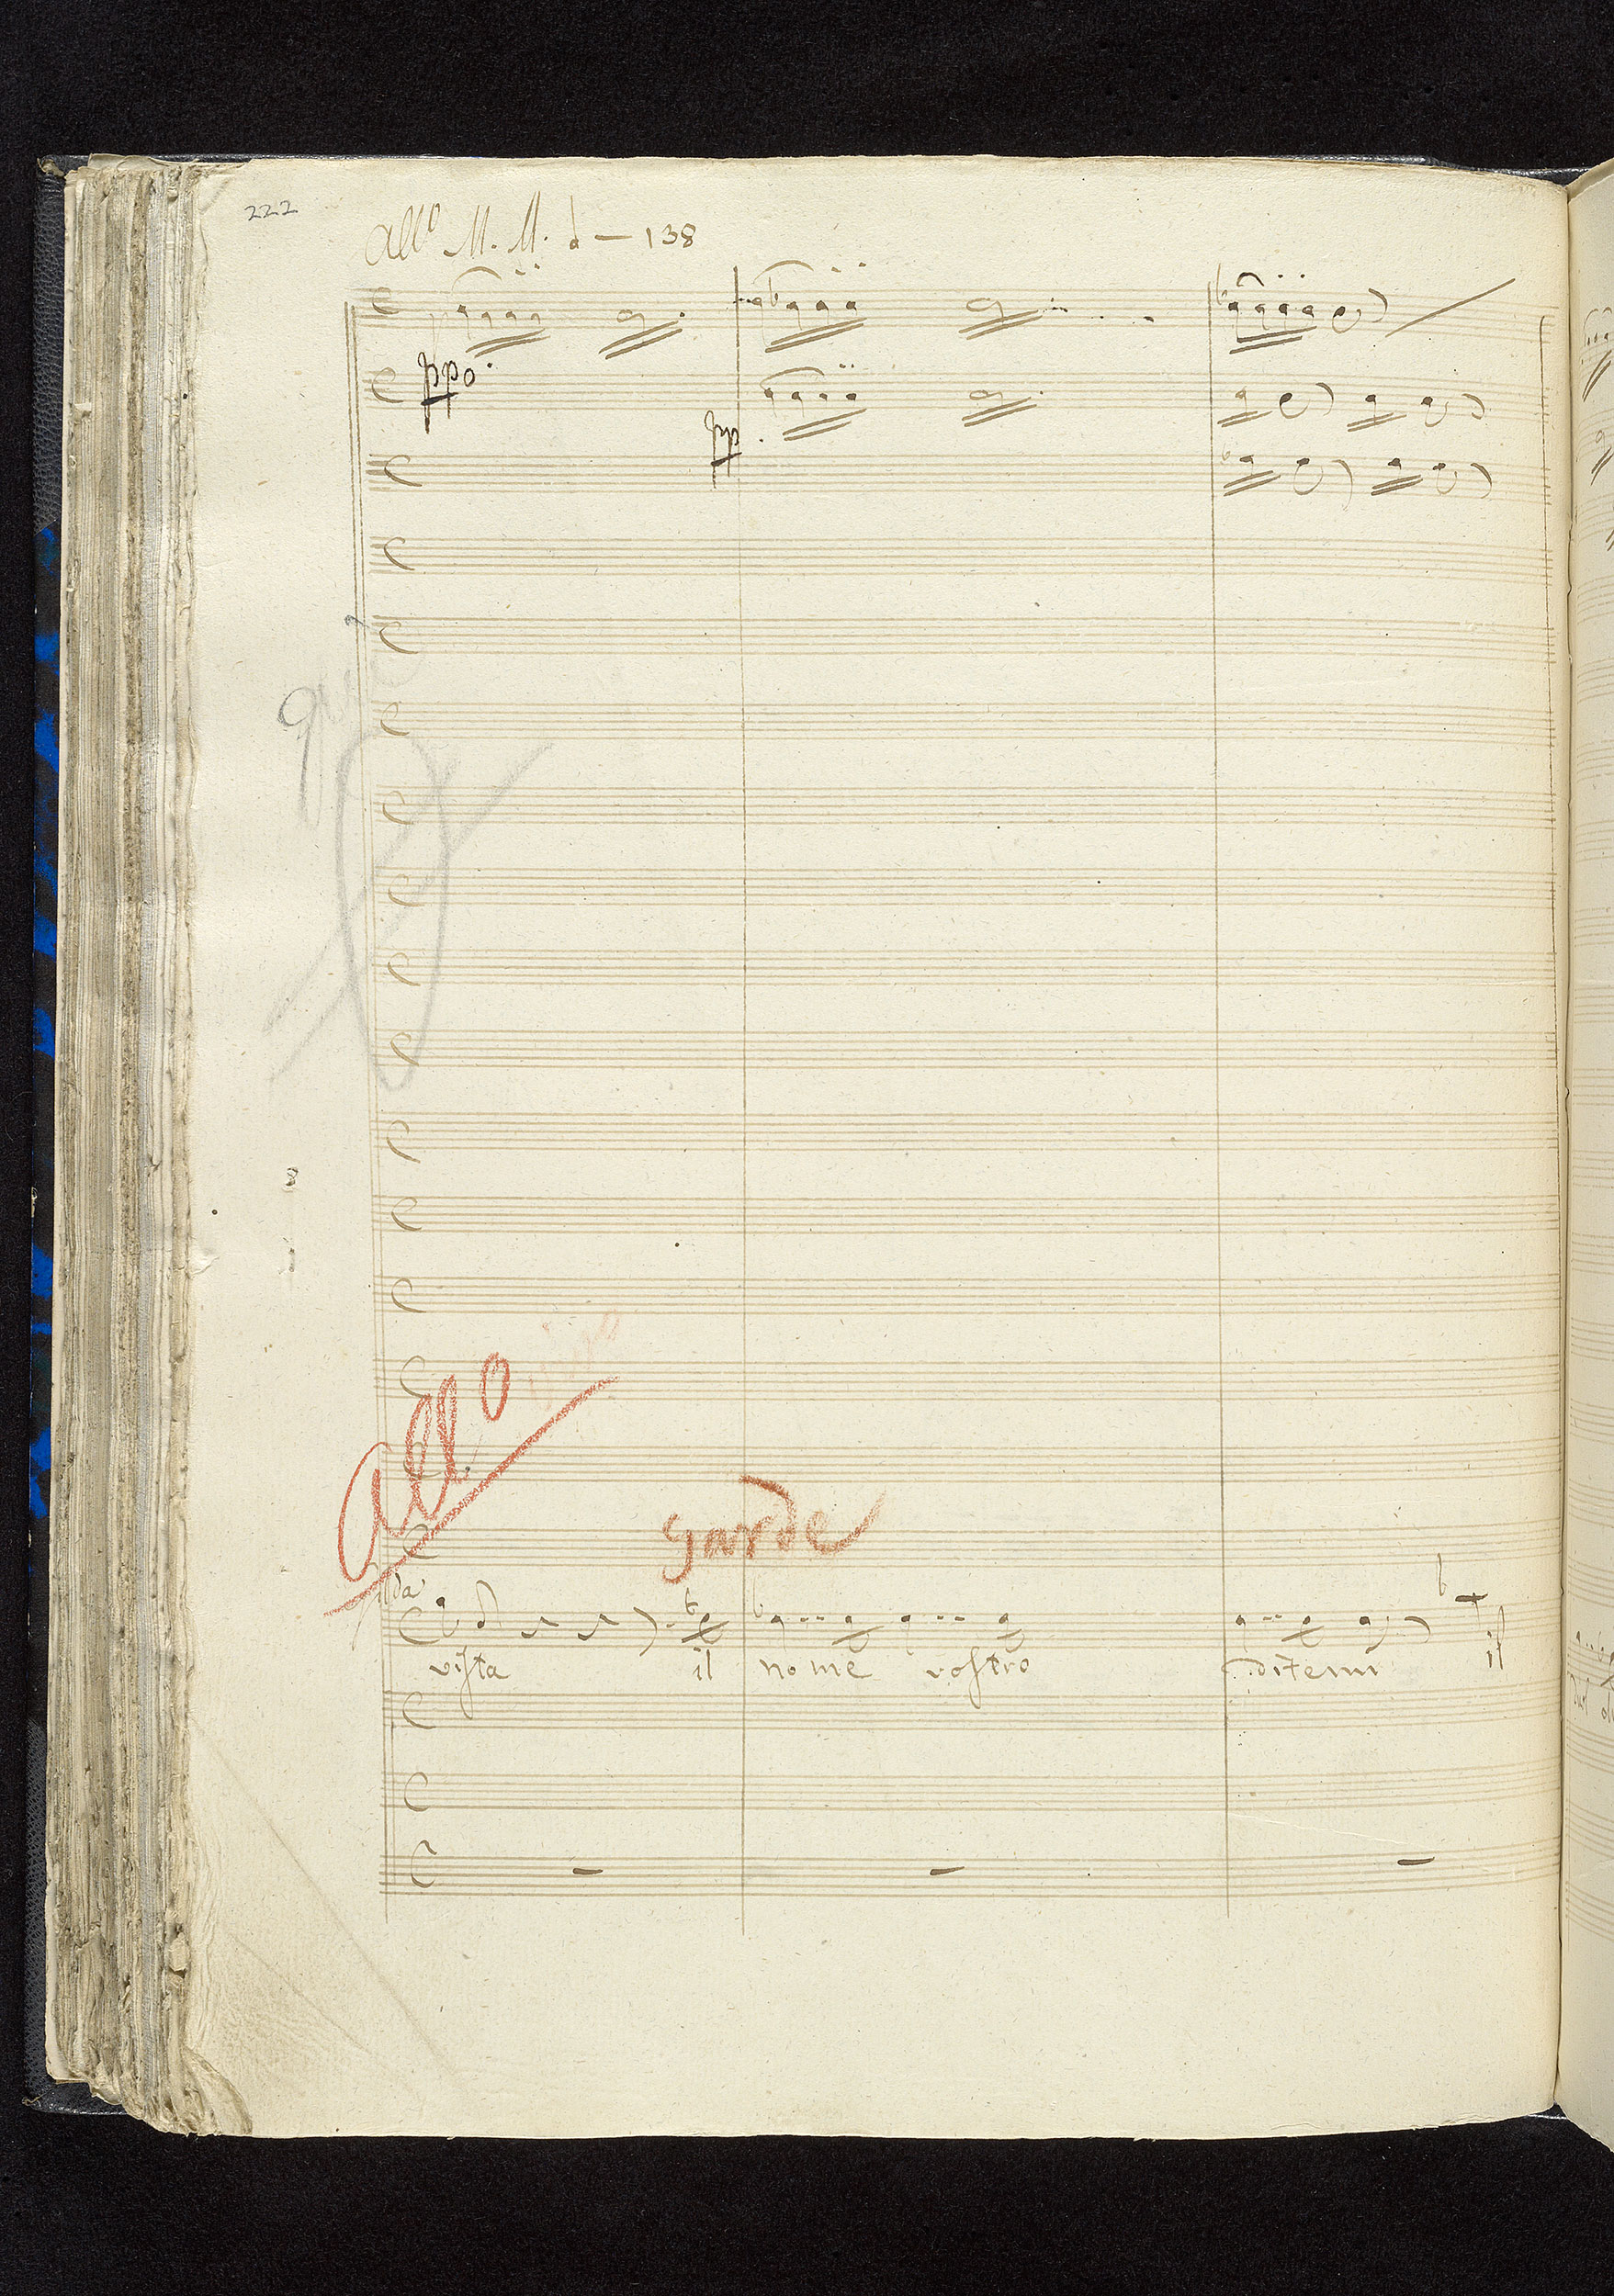 222
all° M. M. 𝅗𝅥 — 138
ppo.
pp.
8
1
all°
garde
ilda
vista il nome vostro ditemi il